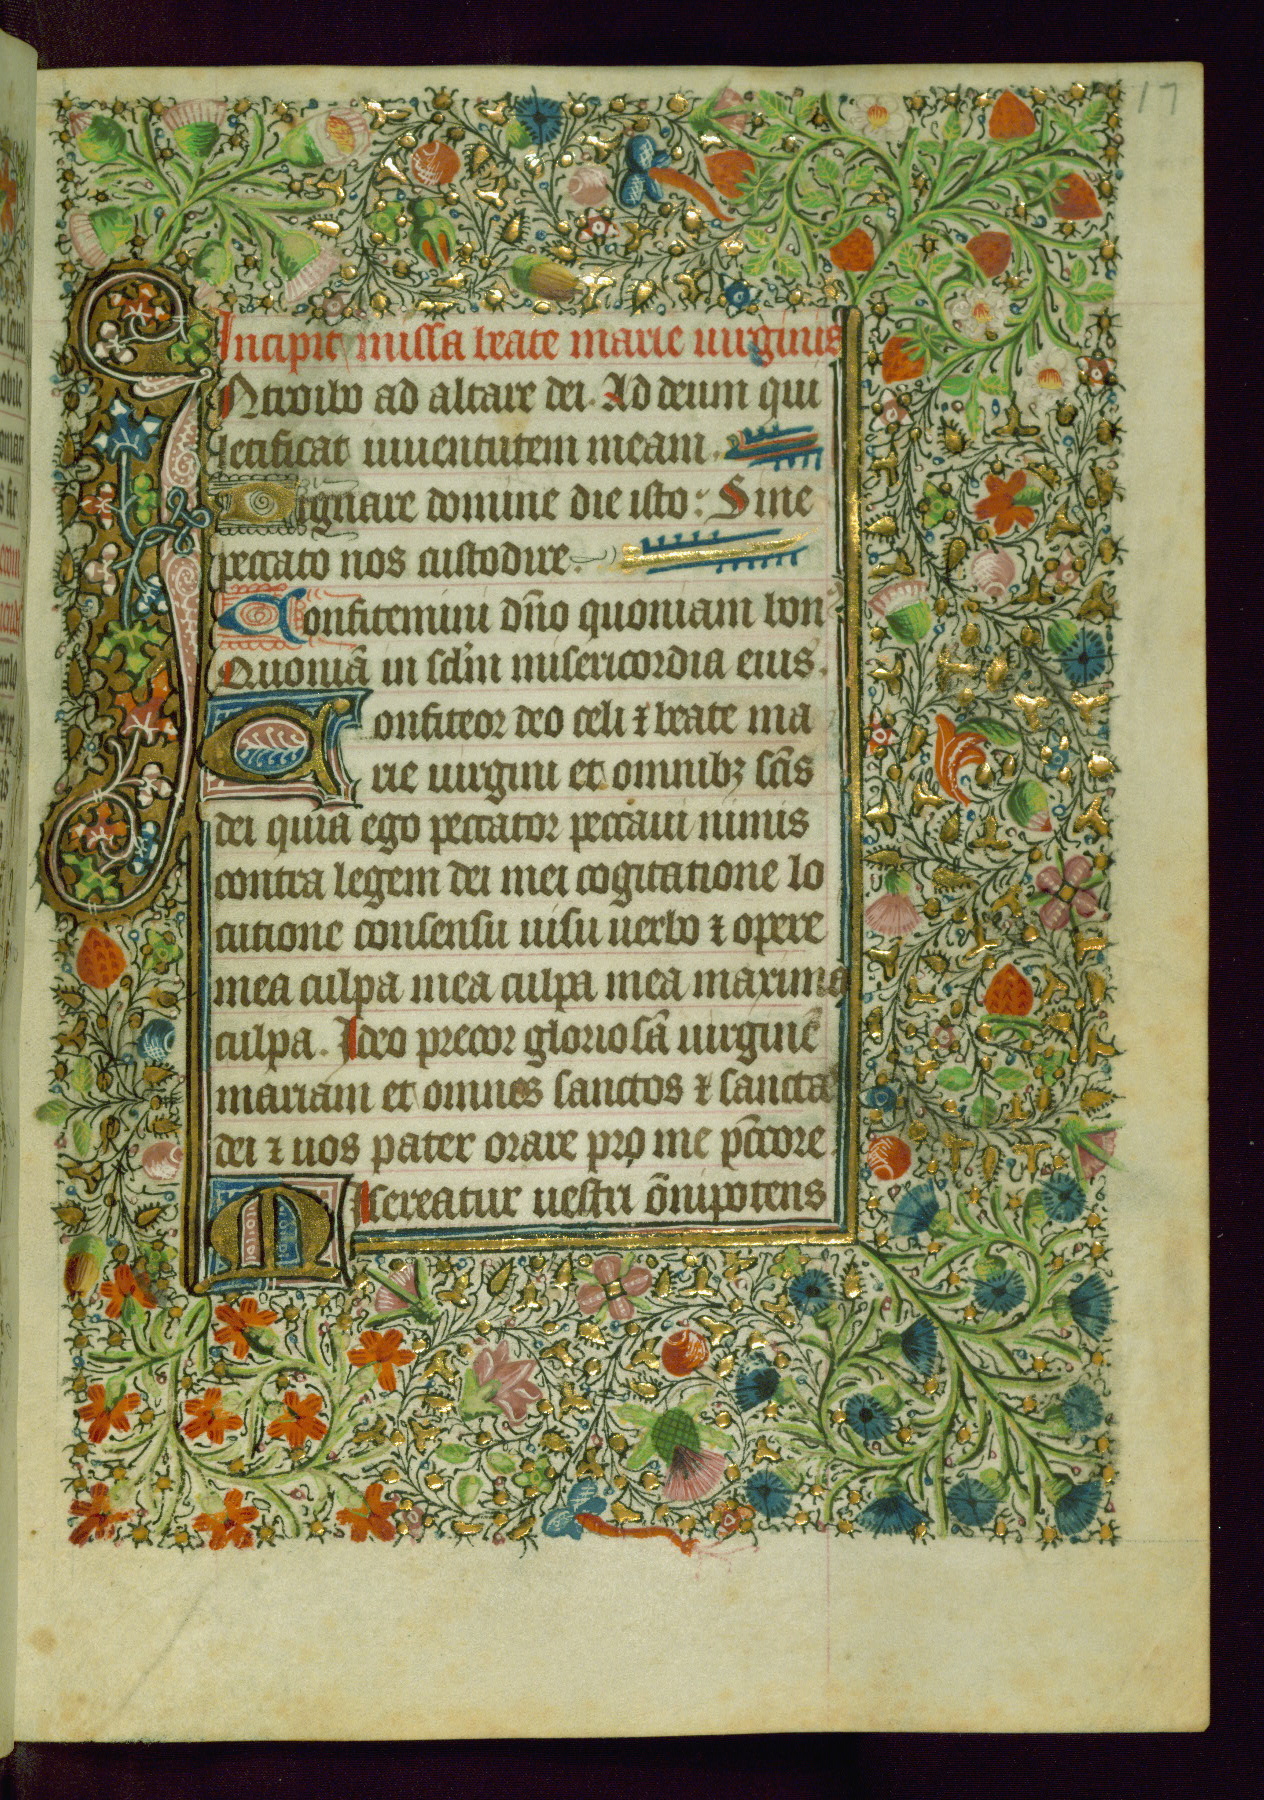 17
Incipit missa beate marie uirginis
INtroibo ad altare dei. Ad deum qui
letificat iuuentutem meam.
Dignare domine die isto: Sine
peccato nos custodire.
Confitemini dño quoniam bon
Quoniā in sclm misericordia eius.
Confiteor deo celi ⁊ beate ma
rie uirgini et omnibꝫ scīs
dei quia ego peccator peccaui nimis
contra legem dei mei cogitatione lo
cutione consensu uisu uerbo ⁊ opere
mea culpa mea culpa mea maxima
culpa. Ideo precor gloriosā uirginē
mariam et omnes sanctos ⁊ sanctas
dei ⁊ uos pater orare pro me pctōre.
Misereatur uestri om̄ipotens